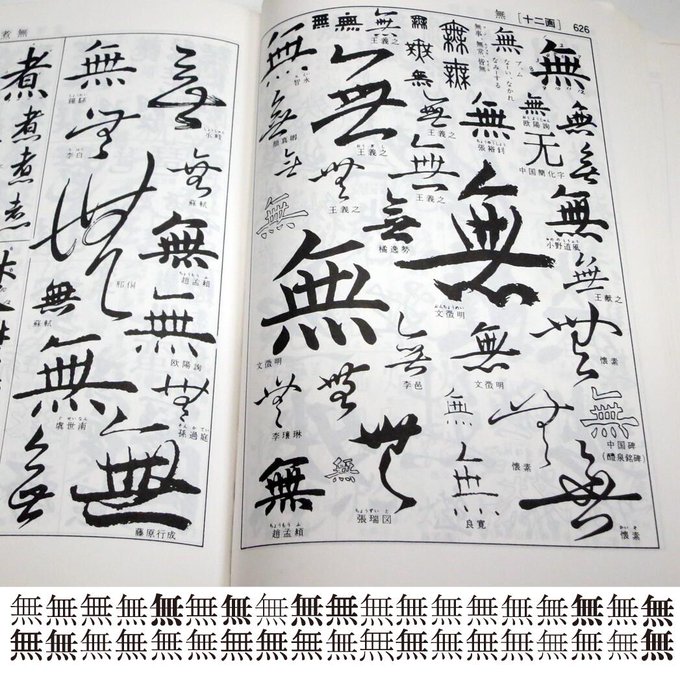 無 [十二画] 626
無
無
欧陽詢
无
中国簡化字
無
小野道風
無
王献之
無
懐素
無
中国碑
(醴泉銘碑)
無
懐素
無
ブ、ム
なーい、なかれ
なみーする
無事・無常・皆無
無
張裕釗
無
文徴明
無
文徴明
無
懐素
無
王羲之
無
王羲之
無
橘逸勢
無
李邕
無
良寛
無
王羲之
無
王羲之
無
王羲之
無
張瑞図
無
智永
無
顔真卿
無
文徴明
無
李瓊琳
無
趙孟頫
煮 無
無
無
蘇軾
無
趙孟頫
無
欧陽詢
無
孫過庭
無
藤原行成
無
無
李白
無
無
蘇軾
無
虞世南
無
煮
煮
煮
煮
無無無無無無無無無無無無無無無無無無無
無無無無無無無無無無無無無無無無無無無